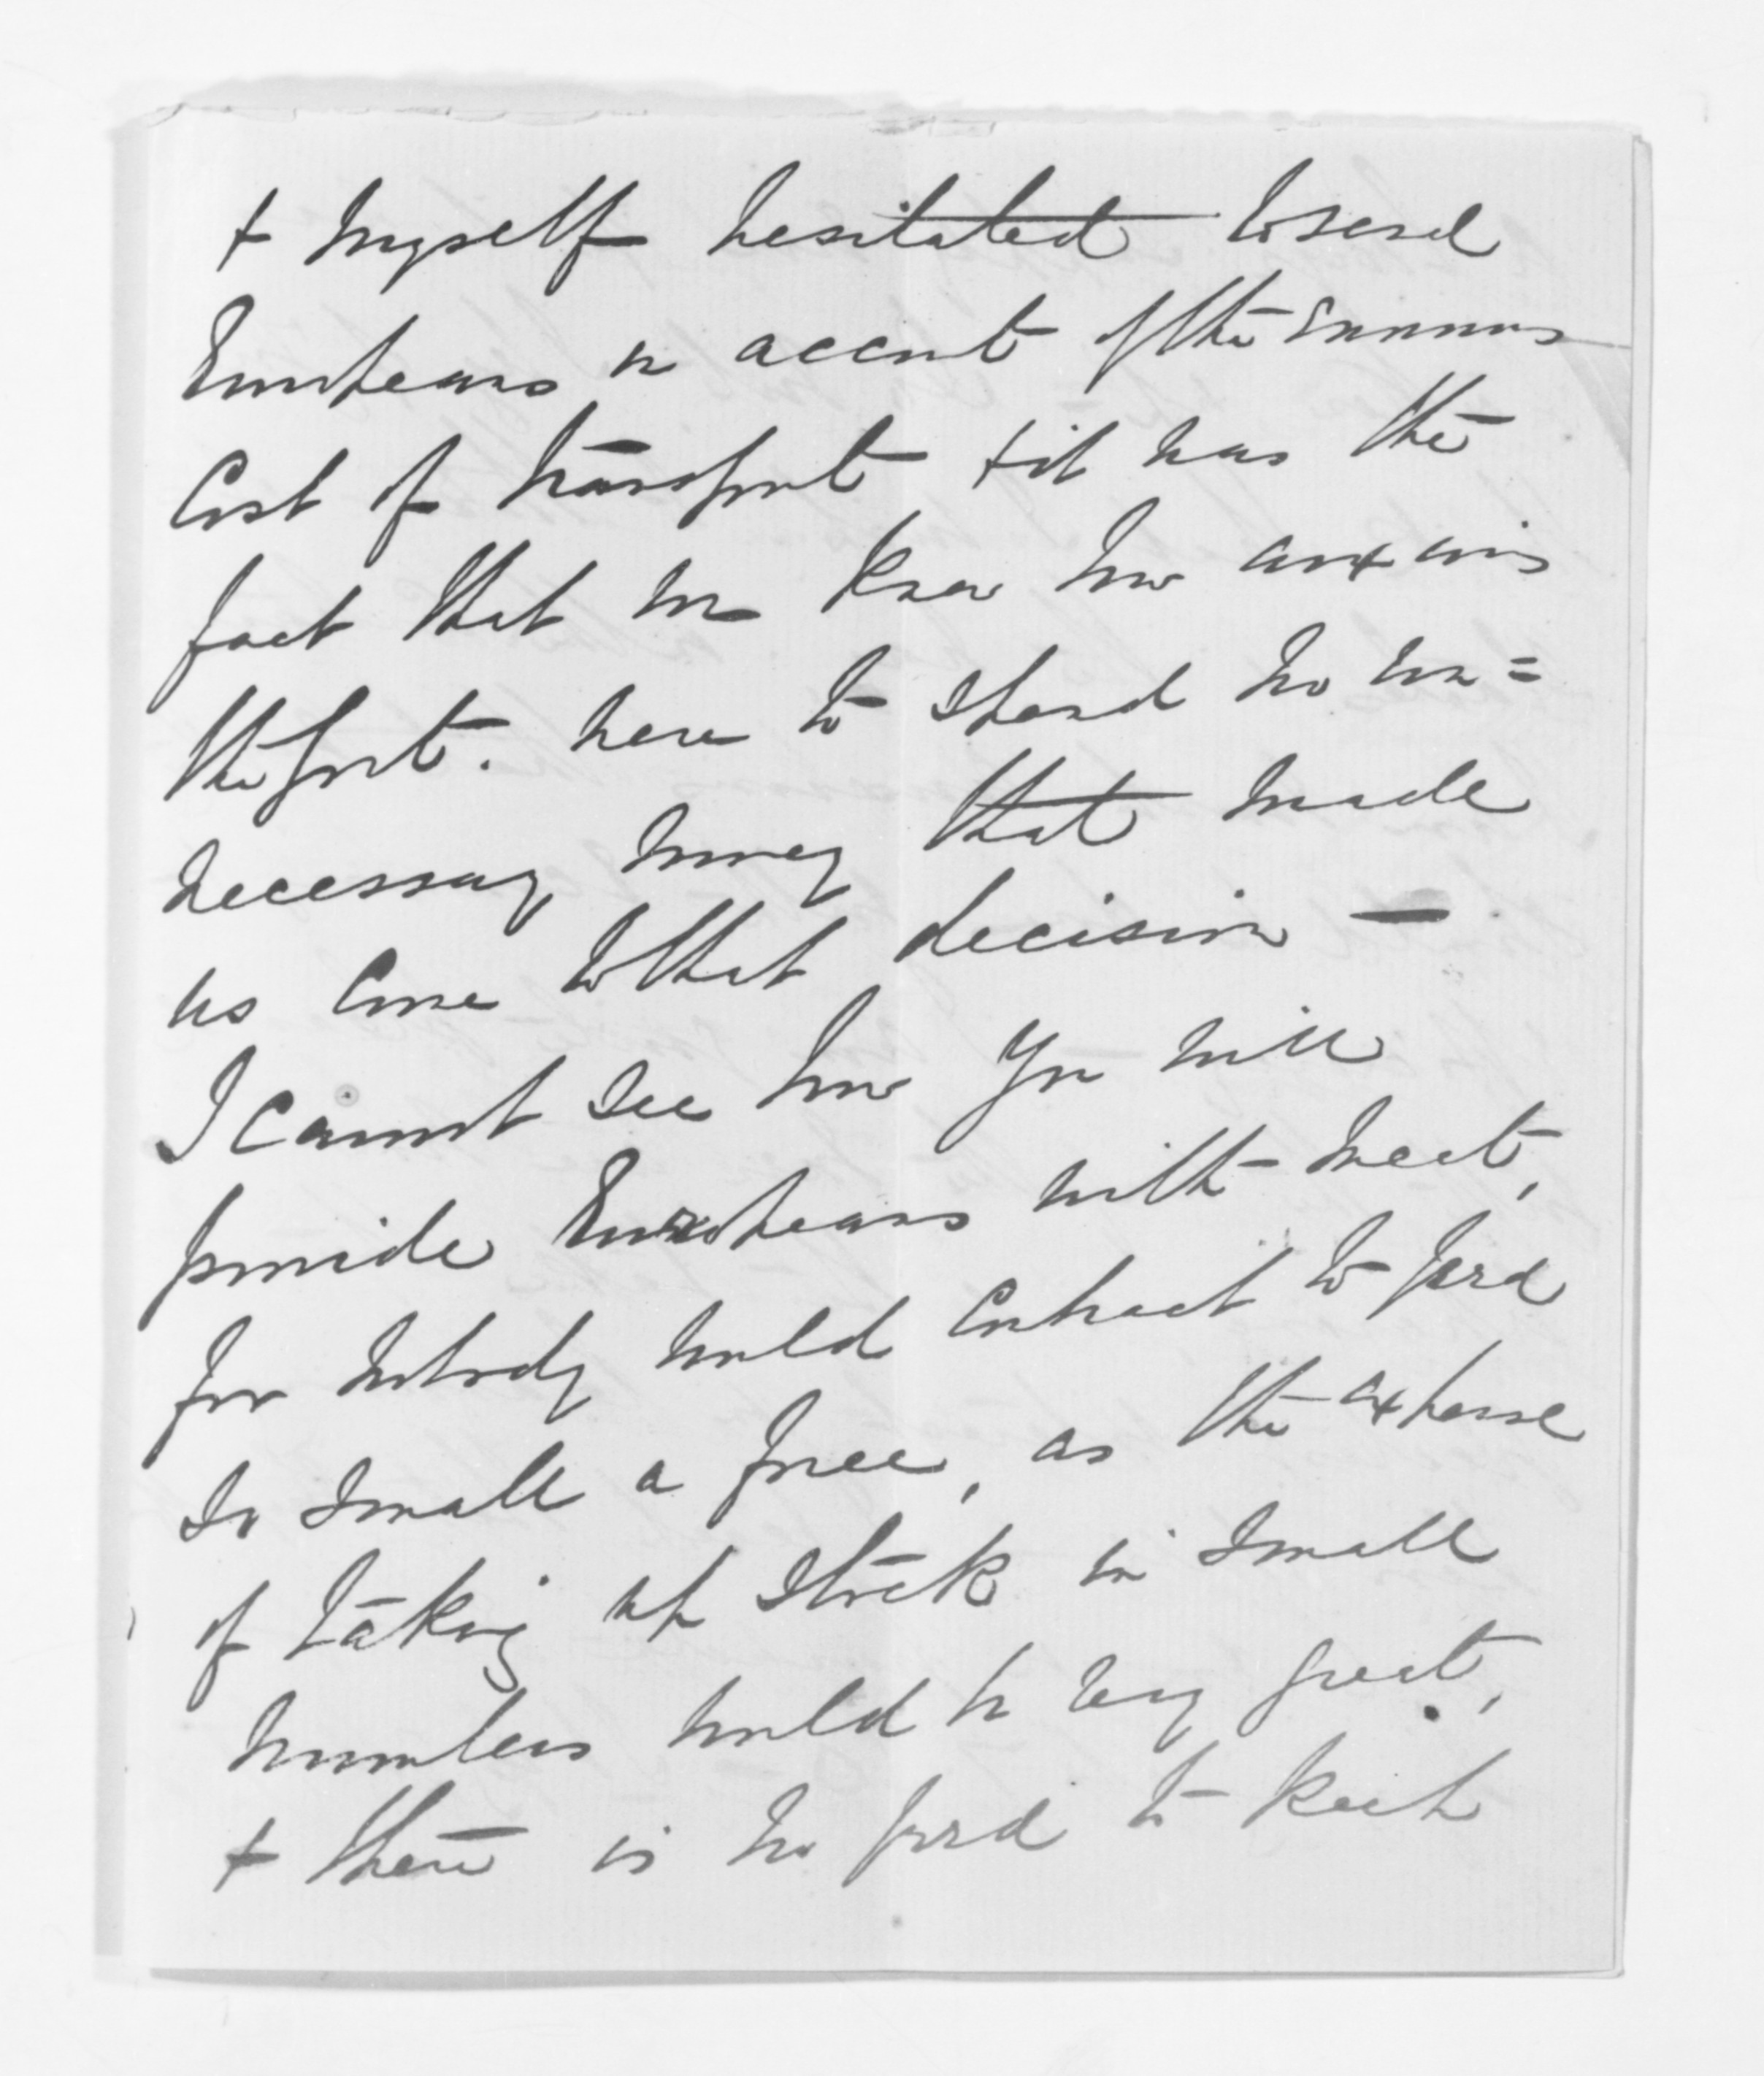 & myself hesitated to send
Europeans on account of the enormous
cost of transport & it was the
fact that we knew how anxious
the Govt. were to spend no un=
necessary money that made
us come to that decision —
I cannot see how you will
provide Europeans with meat,
for nobody would contract to feed
so small a force, as the expense
of taking up stock in small
numbers would be very great,
& there is no food to keep